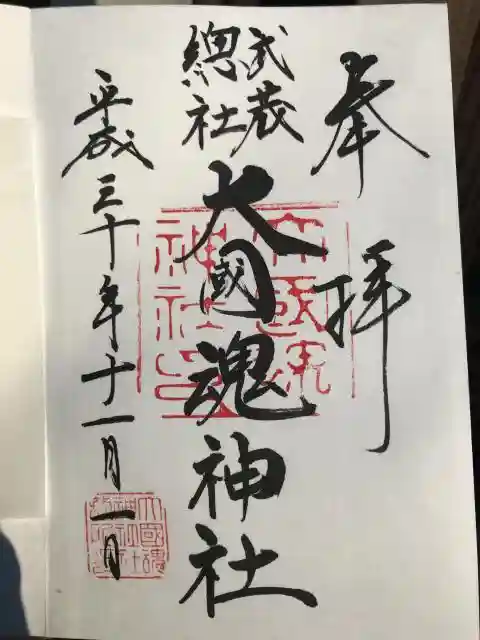 奉拝
武蔵
總社
大國魂神社
平成三十年十一月一日
大國魂
神社印